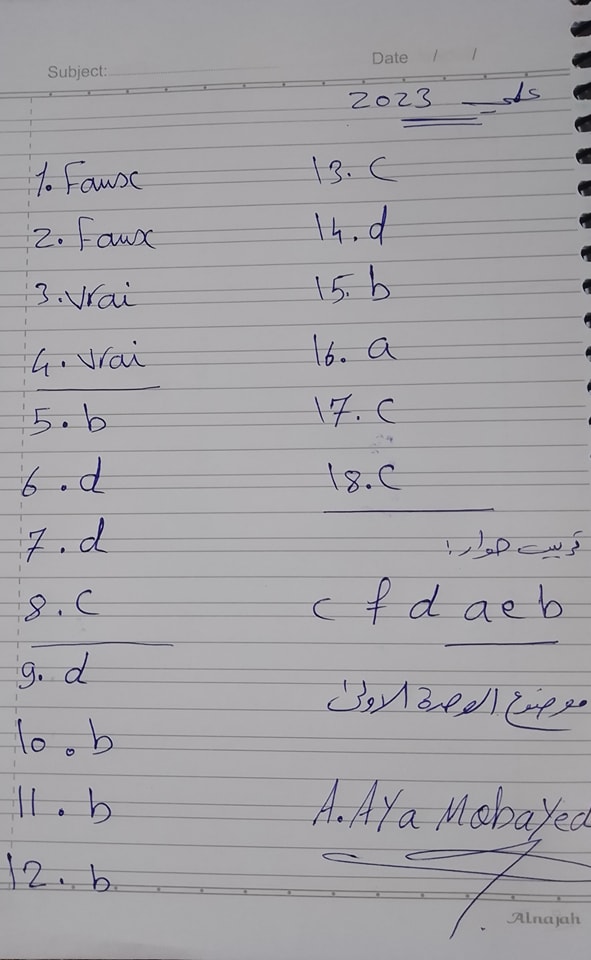 Subject:
Date / /
علمي 2023
1. Faux
2. Faux
3. vrai
4. vrai
5. b
6. d
7. d
8. c
9. d
10. b
11. b
12. b
13. c
14. d
15. b
16. a
17. c
18. c
ترتيب حوار:
c f d a e b
موضوع الوحدة الاولى
A. Aya Mobayed
Alnajah